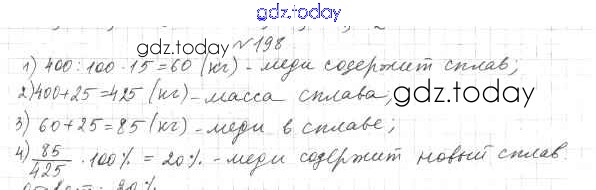 gdz.today
gdz.today №198
1) 400 : 100 · 15 = 60 (кг) - меди содержит сплав;
2) 400 + 25 = 425 (кг) - масса сплава; gdz.today
3) 60 + 25 = 85 (кг) - меди в сплаве;
4) 85/425 · 100% = 20% - меди содержит новый сплав.
Ответ: 20%